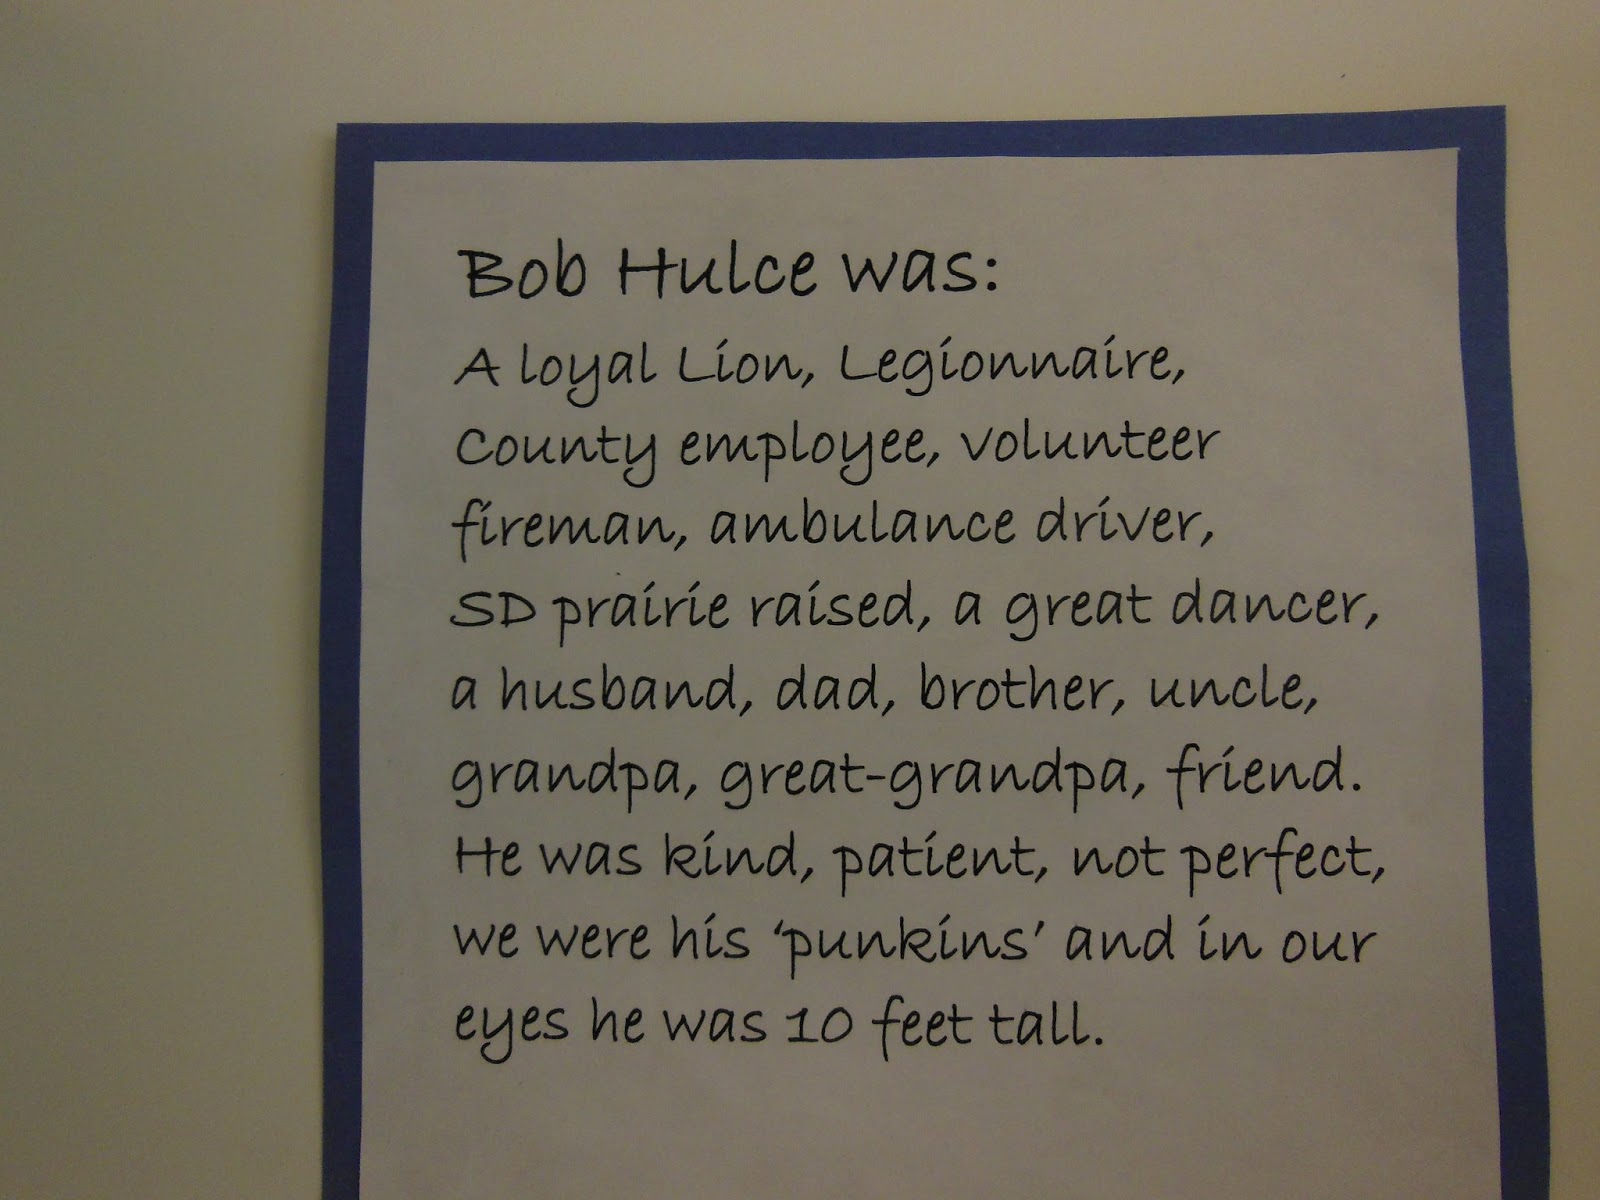 Bob Hulce was:
A loyal Lion, Legionnaire,
County employee, volunteer
fireman, ambulance driver,
SD prairie raised, a great dancer,
a husband, dad, brother, uncle,
grandpa, great-grandpa, friend.
He was kind, patient, not perfect,
we were his ‘punkins’ and in our
eyes he was 10 feet tall.